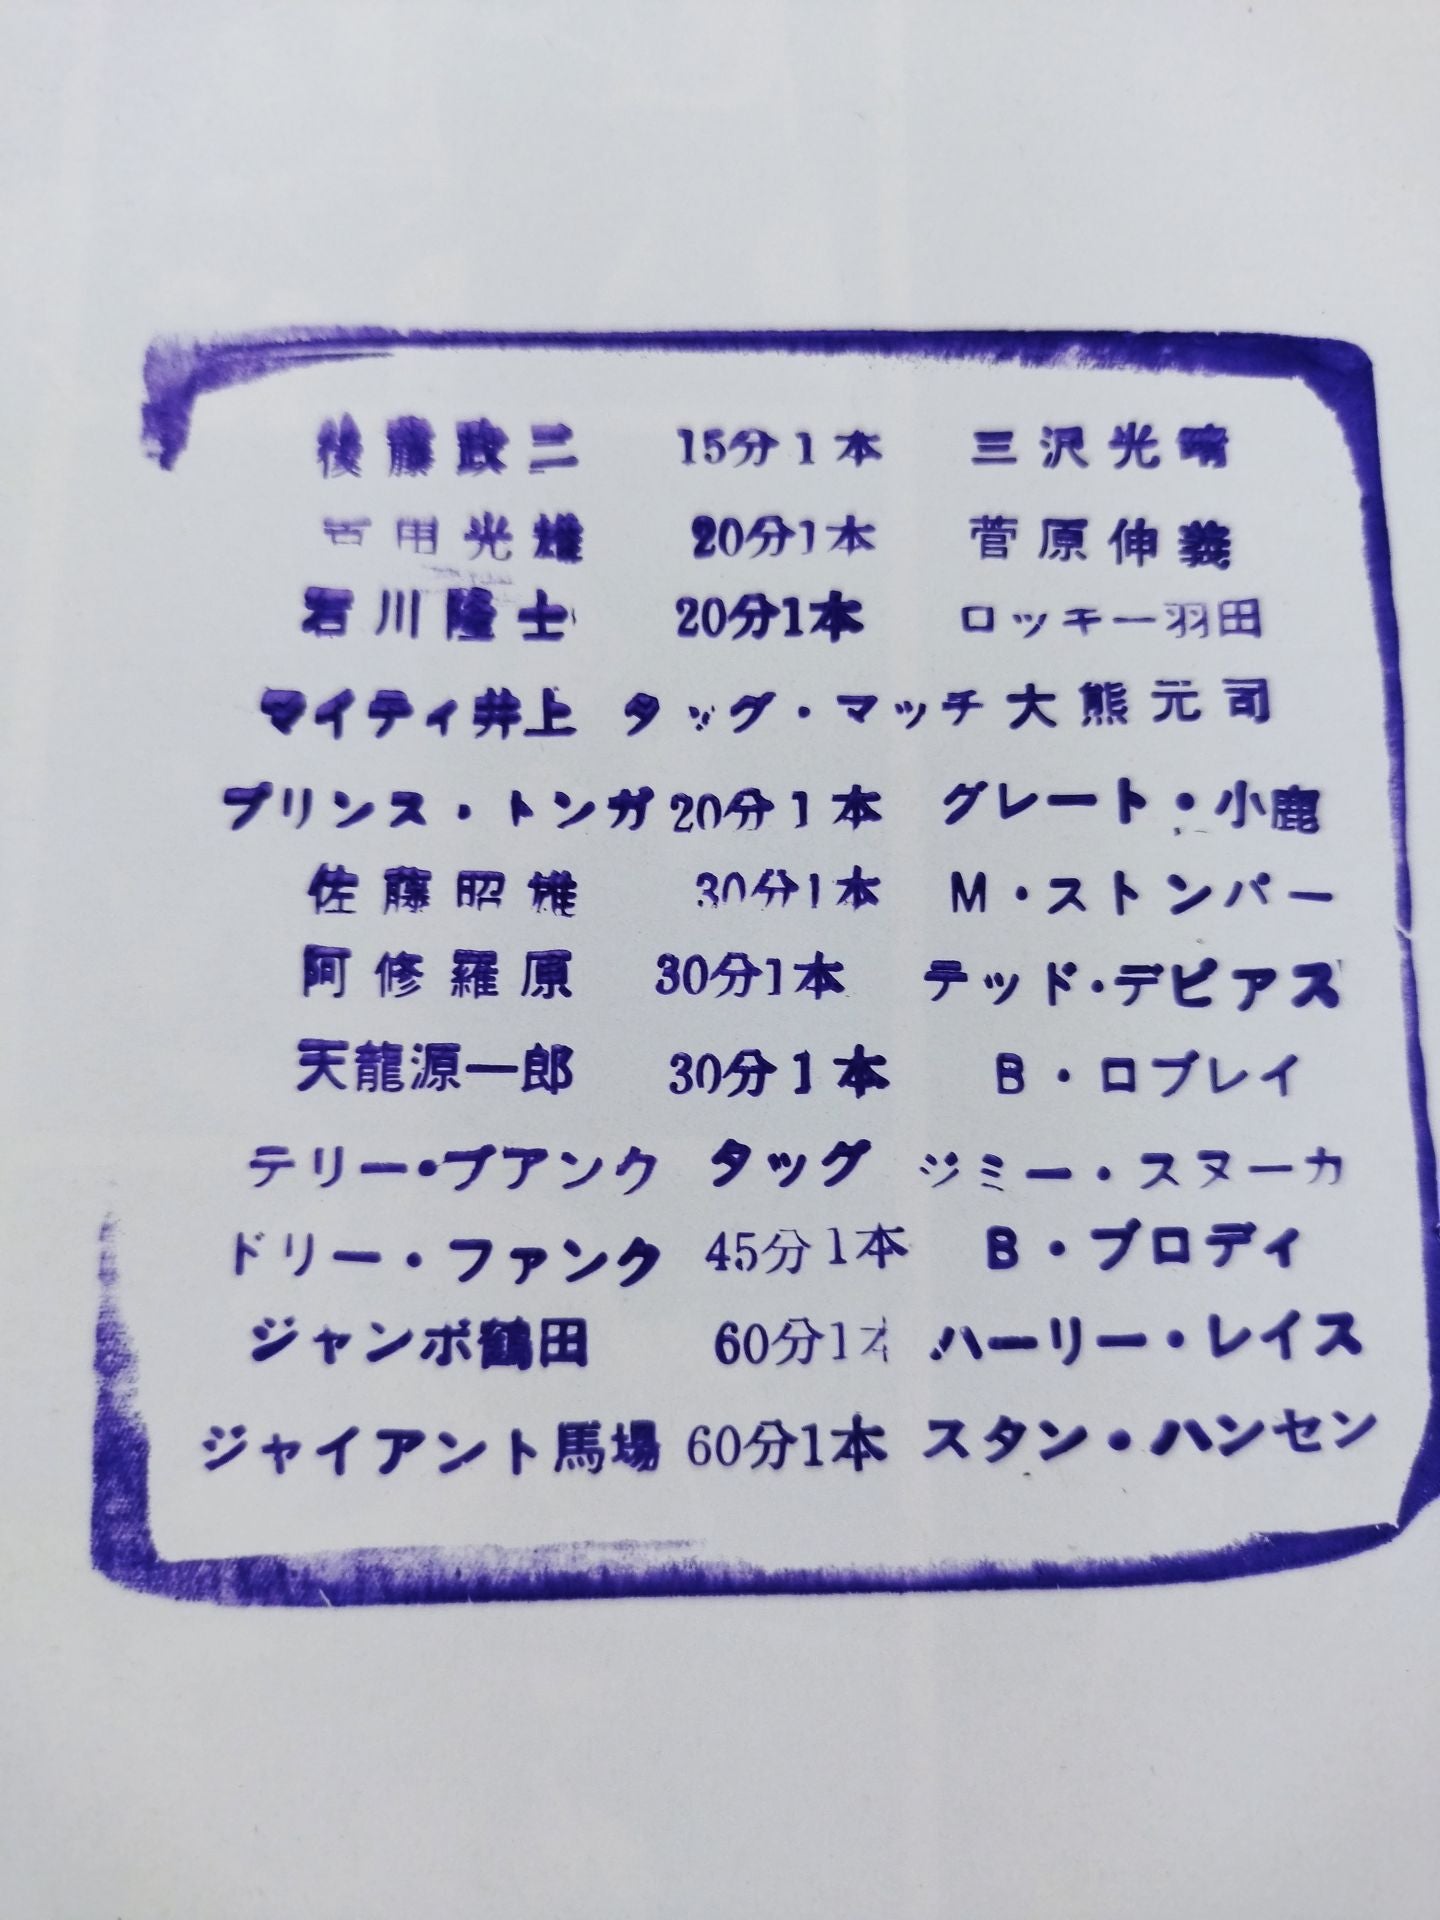 後藤政二 15分1本 三沢光晴
光雄 20分1本 菅原伸義
石川隆士 20分1本 ロッキー羽田
マイティ井上 タッグ・マッチ 大熊元司
プリンス・トンガ 20分1本 グレート・小鹿
佐藤昭雄 30分1本 M・ストンパー
阿修羅原 30分1本 テッド・デビアス
天龍源一郎 30分1本 B・ロブレイ
テリー・ブアンク タッグ ジミー・スヌーカ
ドリー・ファンク 45分1本 B・ブロディ
ジャンボ鶴田 60分1本 ハーリー・レイス
ジャイアント馬場 60分1本 スタン・ハンセン